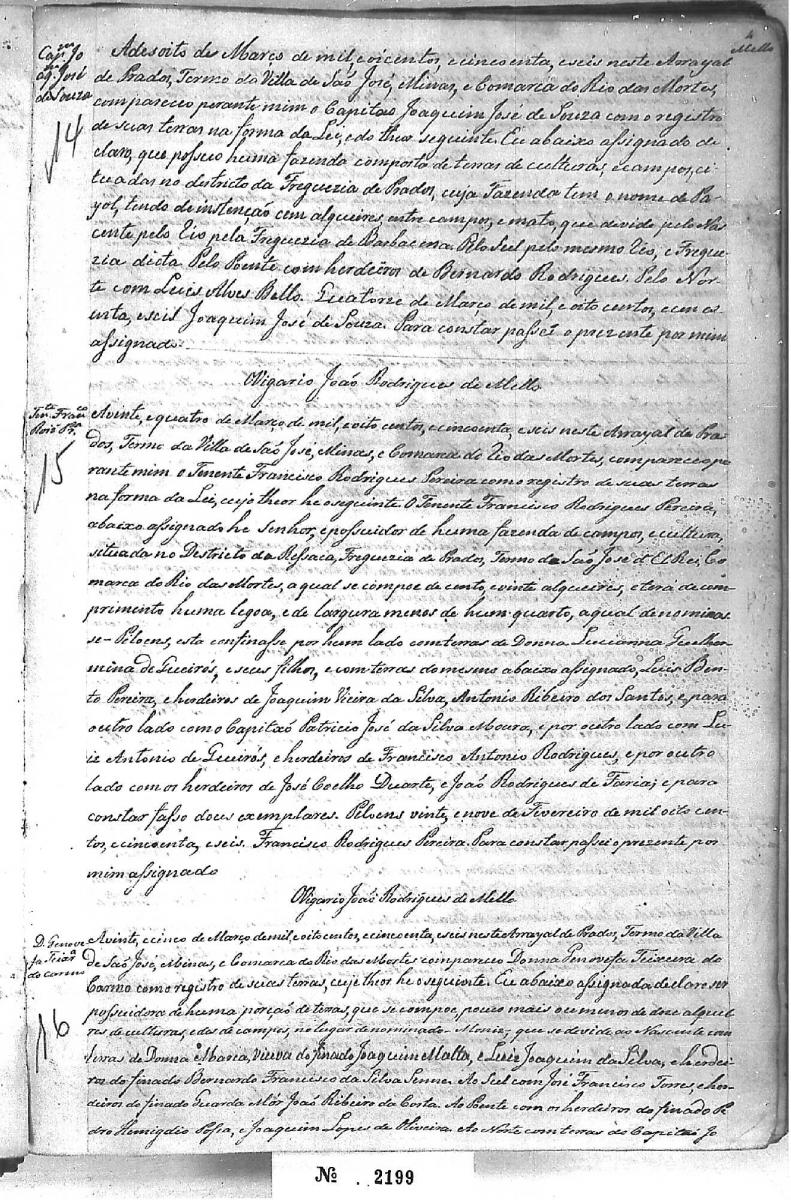 4
Mello
Capm Jo
aqm José
de Souza
14
Adesoito de Março de mil, oicentos, e cincoenta, e seis neste Arrayal
de Prados, Termo da Villa de São José, Minas, e Comarca do Rio das Mortes,
compareceo perante mim o Capitao Joaquim José de Souza com o registro
de suas terras na forma da Lei, e do theor seguinte. Eu abaixo assignado de
claro, que possuo huma fazenda composta de terras de culturas, e campos, ci
tuadas no districto da Freguezia de Prados, cuja Fazenda tem o nome de Pa
yol, tendo de instenção cem alqueires, entre campos, e mato, que devide pelo Nas
cente pelo Rio pela Freguezia de Barbacena. Pelo Sul pelo mesmo Rio, e Fregue
zia dicta Pelo Poente com herdeiros de Bernardo Rodrigues. Pelo Nor
te com Luis Alves Bello. Quatorze de Marco de mil, e oito centos, e cinco
enta, e seis Joaquim José de Souza. Para constar passei o prezente por mim
assignado.
O Vigario João Rodrigues de Mello
Tente Franco
Roiz Pra
15
A vinte, e quatro de Março de mil, e oito centos, e cincoenta, e seis neste Arrayal de Pra
dos, Termo da Villa de São José, Minas, e Comarca do Rio das Mortes, compareceo pe
rante mim o Tenente Francisco Rodrigues Pereira com o registro de suas terras
na forma da Lei, cujo theor he o seguinte. O Tenente Francisco Rodrigues Pereira,
abaixo assignado he Senhor, e possuidor de huma fazenda de campos, e cultura,
situada no Districto da Ressaca, Freguezia de Prados, Termo de São José d'El Rei, Co
marca do Rio das Mortes, a qual se compoe de cento, e vinte alqueires, e terá de com
primento huma legoa, e de largura menos de hum quarto, a qual denominas
se - Piloens, esta confinasse por hum lado com terras de Donna Lucianna Guilher
mina de Queirós, e seus filhos, e com terras do mesmo abaixo assignado, Luis Ben
to Pereira, e herdeiros de Joaquim Vieira da Silva, Antonio Ribeiro dos Santos, e para
outro lado com o Capitão Patricio José da Silva Moura, e por outro lado com Lu
iz Antonio de Queirós, e herdeiros de Francisco Antonio Rodrigues, e por outro
lado com os herdeiros de José Coelho Duarte, e João Rodrigues de Faria; e para
constar fasso dous exemplares. Piloens vinte, e nove de Fevereiro de mil oito cen
tos, e cincoenta, e seis. Francisco Rodrigues Pereira. Para constar passei o prezente por
mim assignado
O Vigario João Rodrigues de Mello
D. Genove
fa Teixra
do Carmo
16
A vinte, e cinco de Março de mil, e oito centos, e cincoenta, e seis neste Arrayal de Prados, Termo da Villa
de São José, e Minas, e Comarca do Rio das Mortes compareceo Donna Genovefa Teixeira do
Carmo com o registro de suas terras, cuje theor he o seguinte. Eu abaixo assignada declaro ser
possuidora de huma porção de terras, que se compoe, pouco mais ou menos de doze alquei
res de culturas, e des de campos, no lugar denominado - Moniz -, que se devide ao Nascente com
terras de Donna Maria, Viuva do finado Joaquim Malta, e Luiz Joaquim da Silva, e herdei
ros do finado Bernardo Francisco da Silva Senne. Ao Sul com José Francisco Torres, e her
deiros do finado Guarda Mór João Ribeiro da Costa. Ao Poente com os herdeiros do finado Pe
dro Hemigdio, e Joaquim Lopes de Oliveira. Ao Norte com terras do Capitão Jo
No 2199